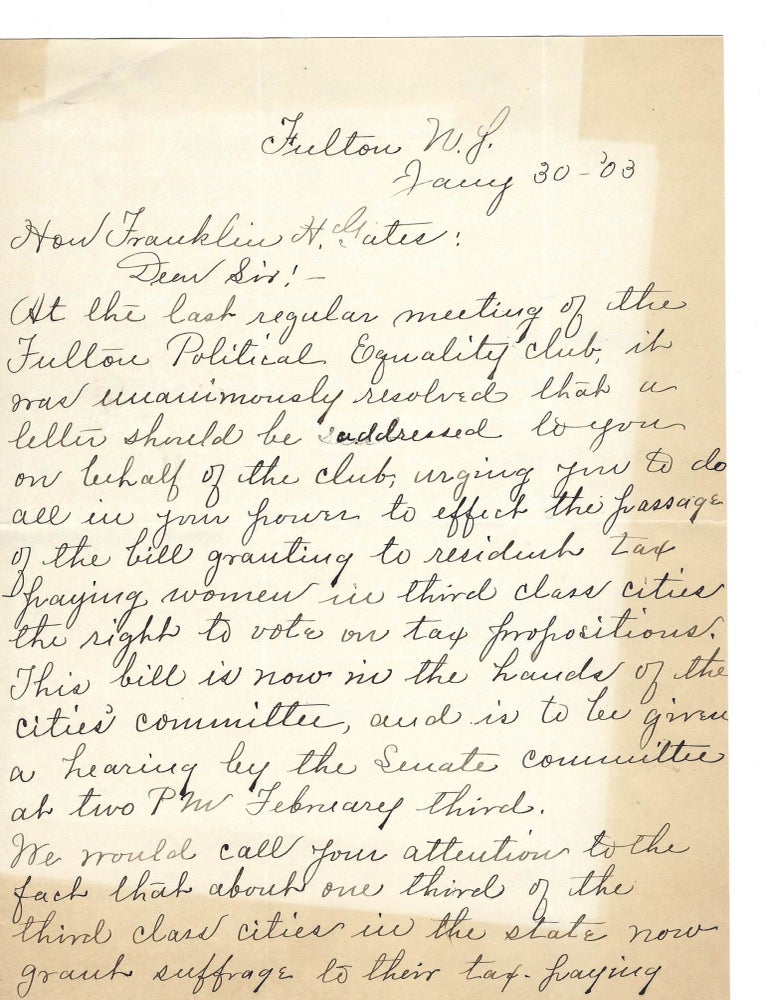 Fulton N.Y.
Jany 30-'03
Hon Franklin H. Gates:
Dear Sir! —
At the last regular meeting of the
Fulton Political Equality club, it
was unanimously resolved that a
letter should be addressed to you
on behalf of the club, urging you to do
all in your power to effect the passage
of the bill granting to resident tax
paying women in third class cities
the right to vote on tax propositions.
This bill is now in the hands of the
cities' committee, and is to be given
a hearing by the Senate committee
at two PM February third.
We would call your attention to the
fact that about one third of the
third class cities in the state now
grant suffrage to their tax-paying